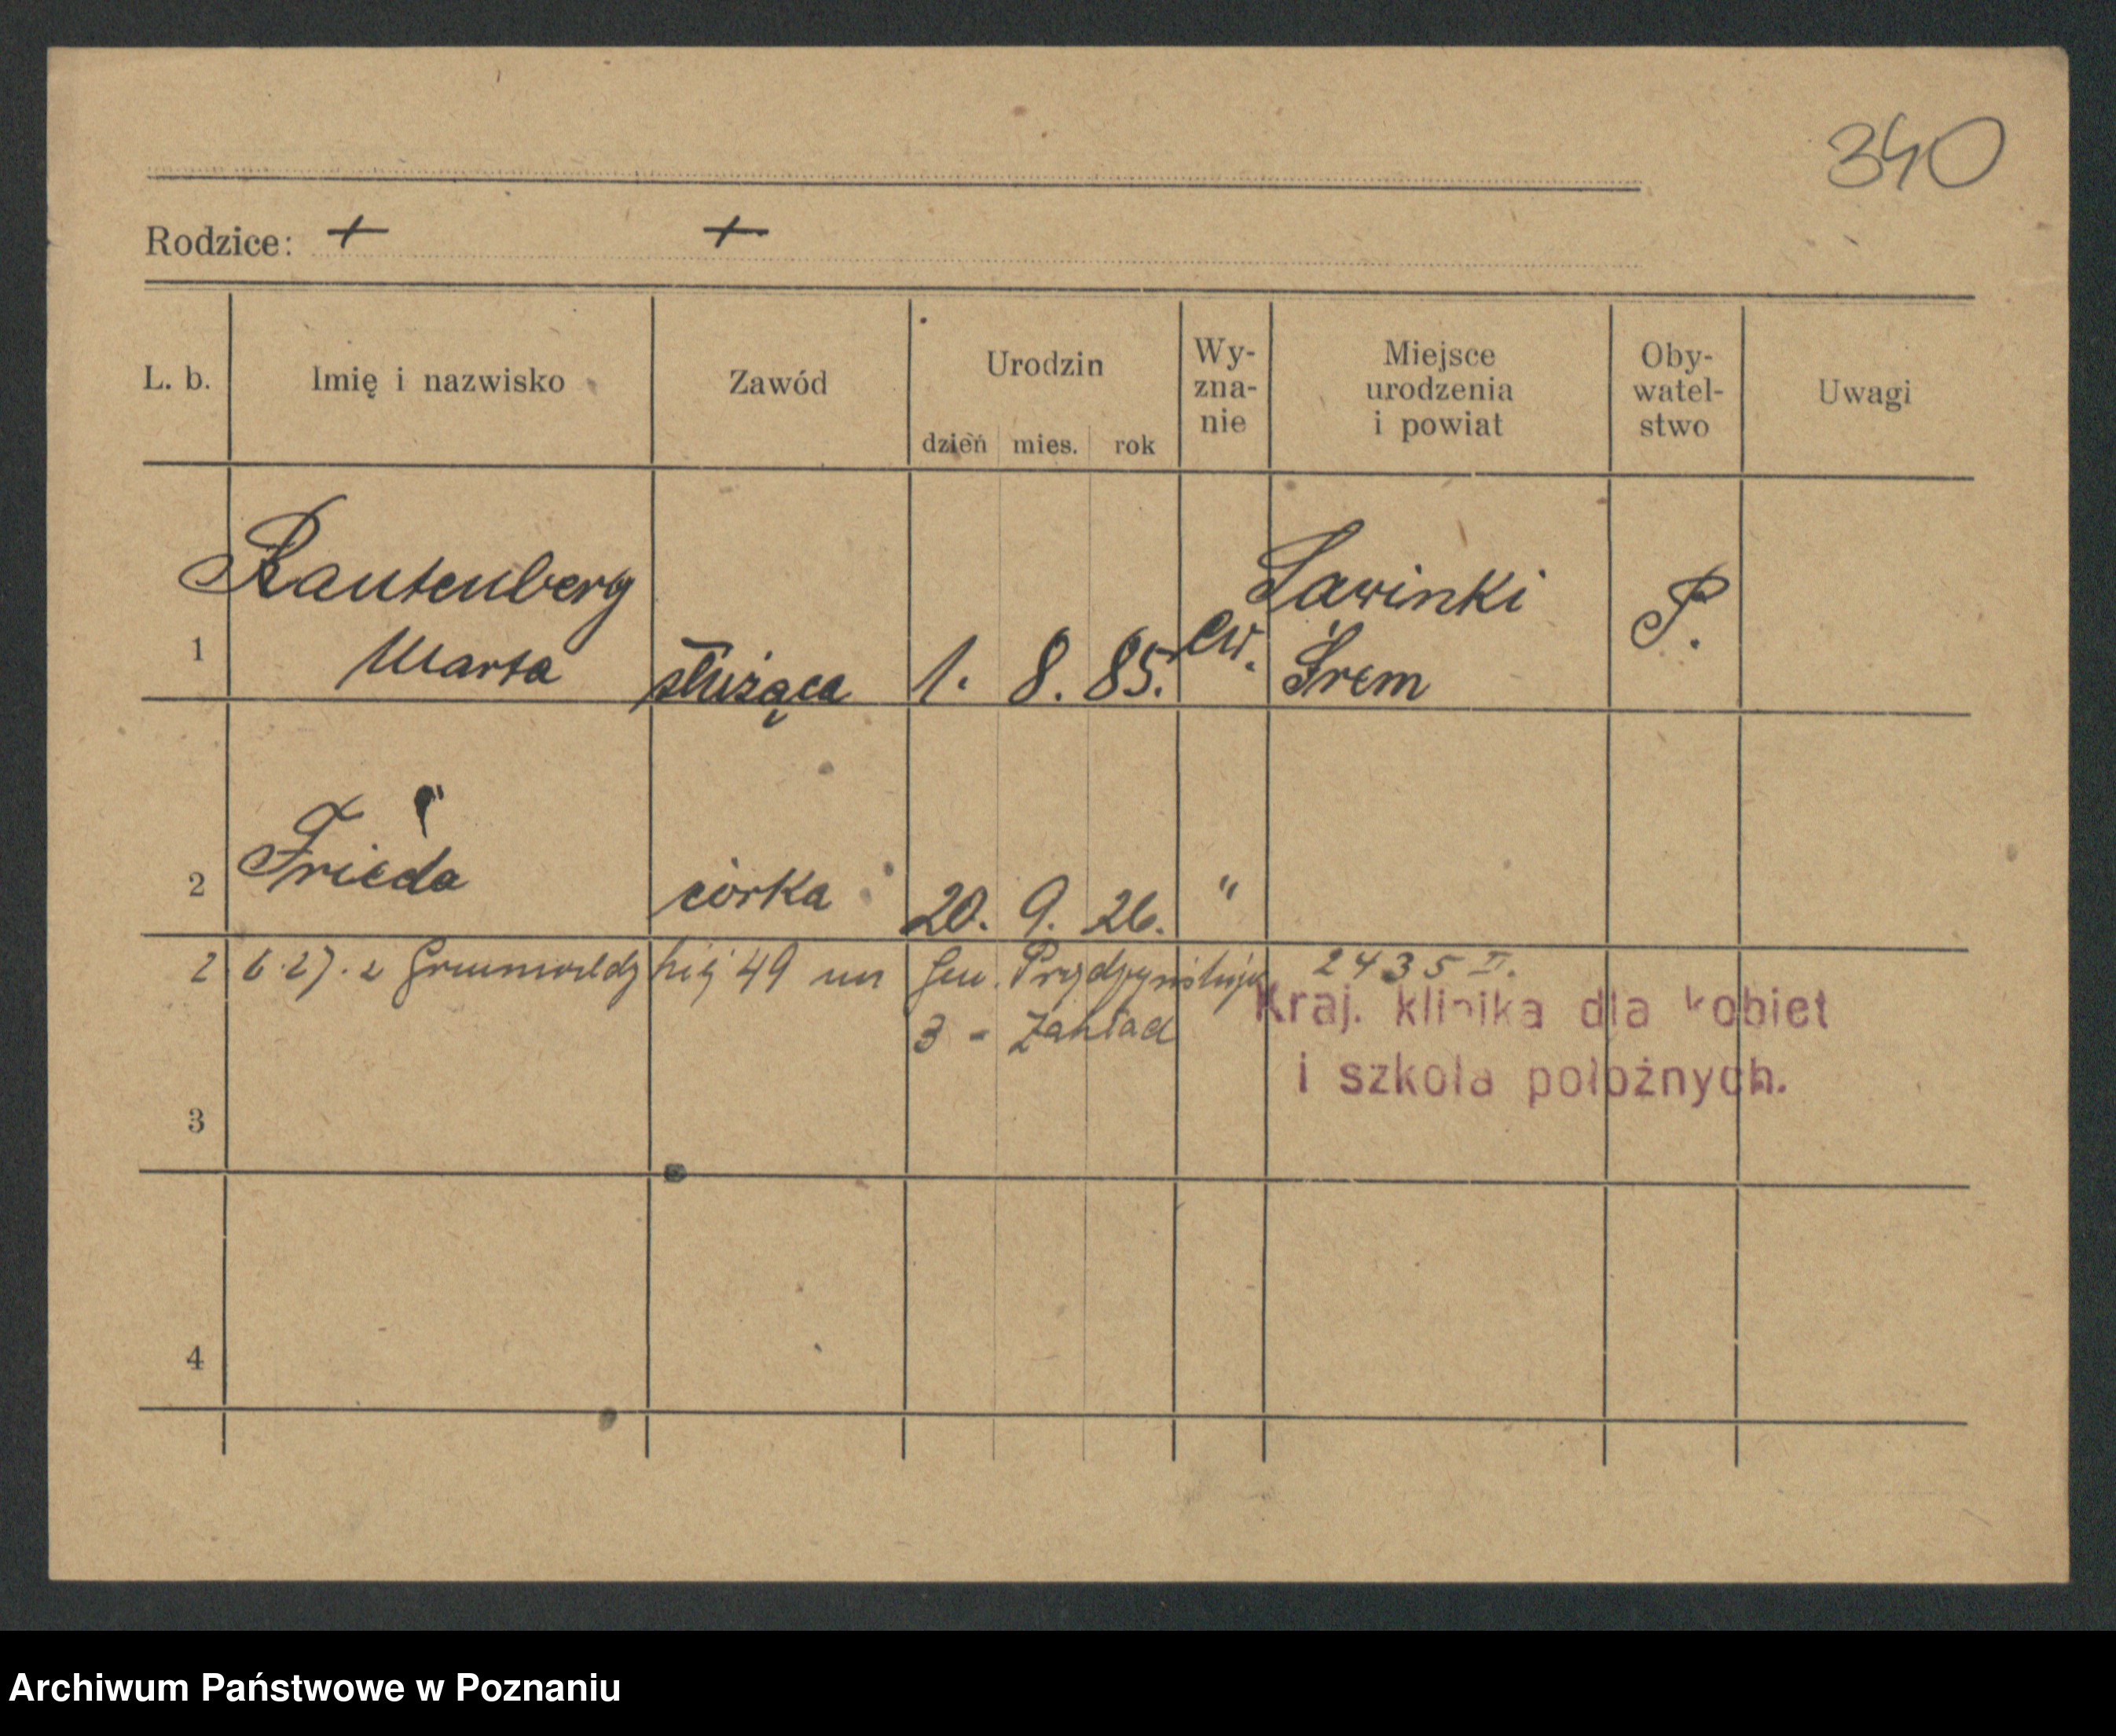 340
Rodzice: + +
L. b. Imię i nazwisko Zawód Urodzin dzień mies. rok Wy-zna-nie Miejsce urodzenia i powiat Oby-watel-stwo Uwagi
Rautenberg Sawinki
1 Marta służąca 1. 8. 85. ew. Śrem P.
"
2 Frieda córka 20. 9. 26. "
2 6.27. z Grunwaldzkiej 49 na Gen. Prądzyńskiego 2435 II.
3 - Zakład
Kraj. klinika dla kobiet
i szkoła położnych.
3
4
Archiwum Państwowe w Poznaniu